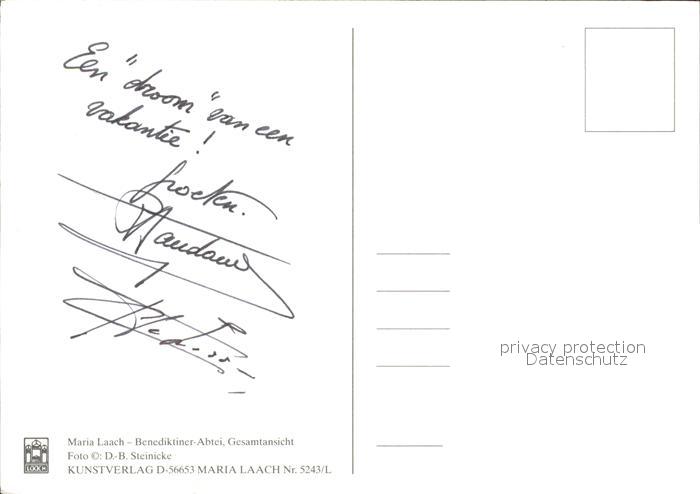 Een "droom" van een
vakantie!
Groeten.
privacy protection
Datenschutz
LAACH
Maria Laach – Benediktiner-Abtei, Gesamtansicht
Foto ©: D.-B. Steinicke
KUNSTVERLAG D-56653 MARIA LAACH Nr. 5243/L